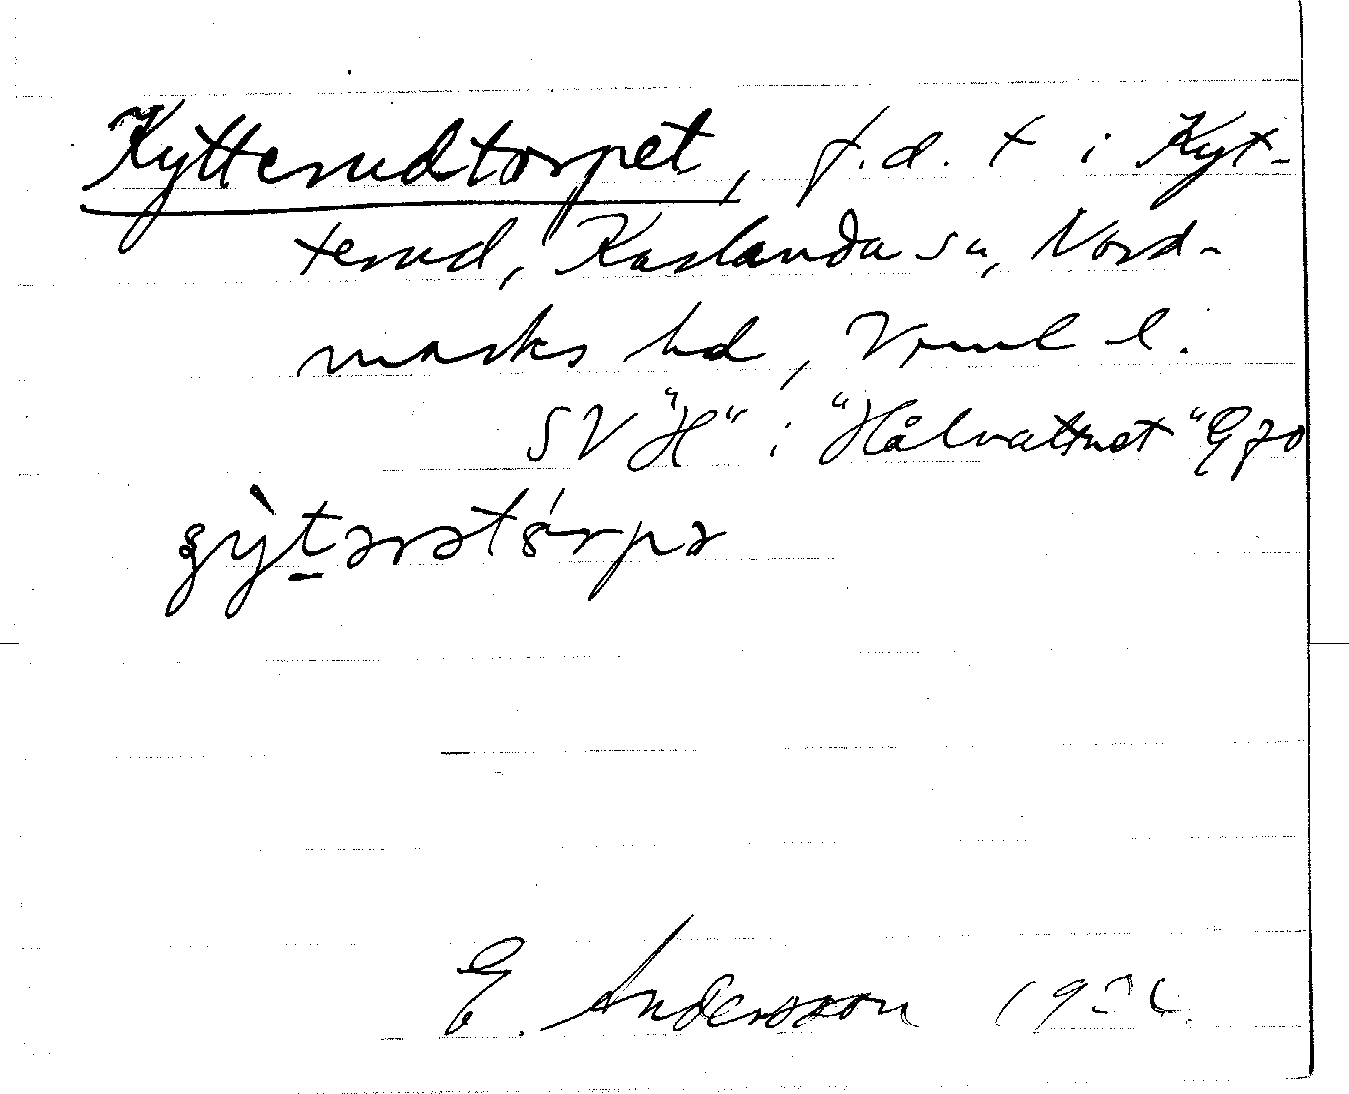 Kytterudtorpet, f.d. t i Kyt-
terud, Karlanda sn, Nord-
marks hd, Vrml l.
SV "H" i "Hålvattnet" Ggfo
E. Andersson 19